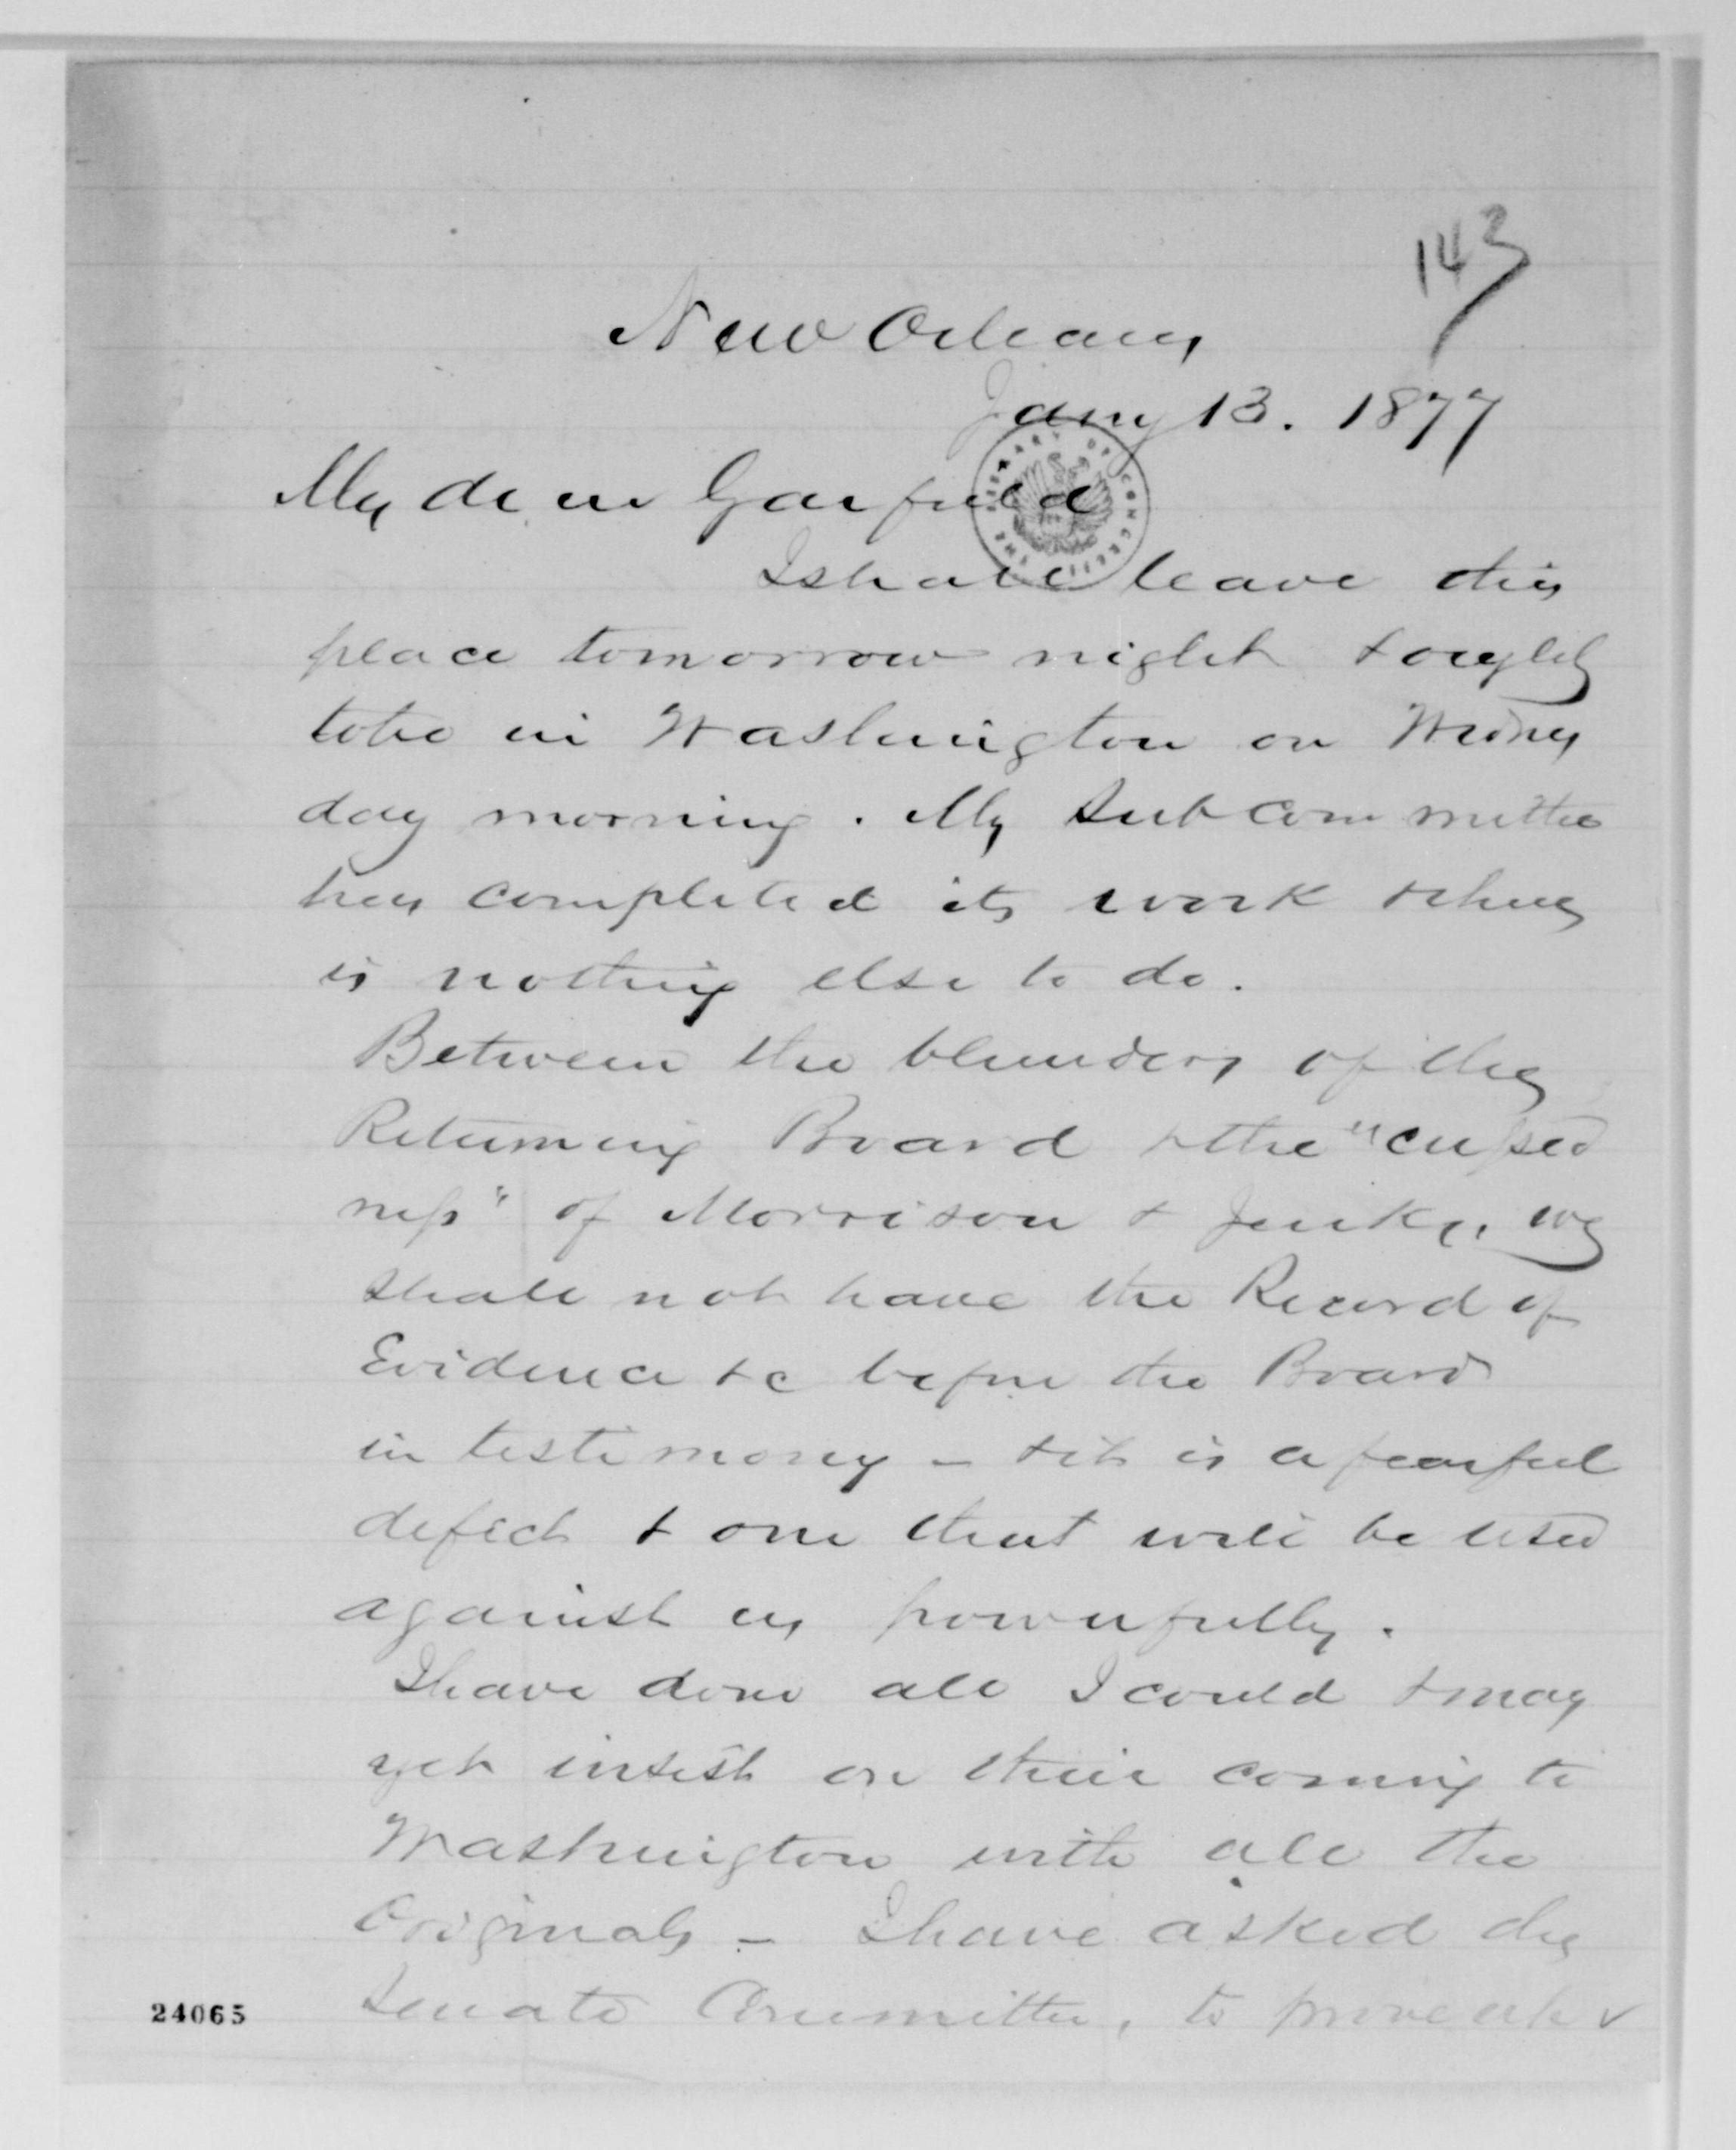 143
New Orleans
Jany 13. 1877
My dear Garfield
I shall leave this
place tomorrow night & ought
to be in Washington on Wednes
day morning. My Sub committee
has completed its work & there
is nothing else to do.
Between the blunders of the
Returning Board & the "cussed
ness" of Morrison & Jenks, we
shall not have the Record of
Evidence &c before the Board
in testimony - & it is a fearful
defect & one that will be used
against us powerfully.
I have done all I could & may
yet insist on their coming to
Washington with all the
Originals - I have asked the
Senate Committee, to prove up &
24065
THE LIBRARY OF CONGRESS